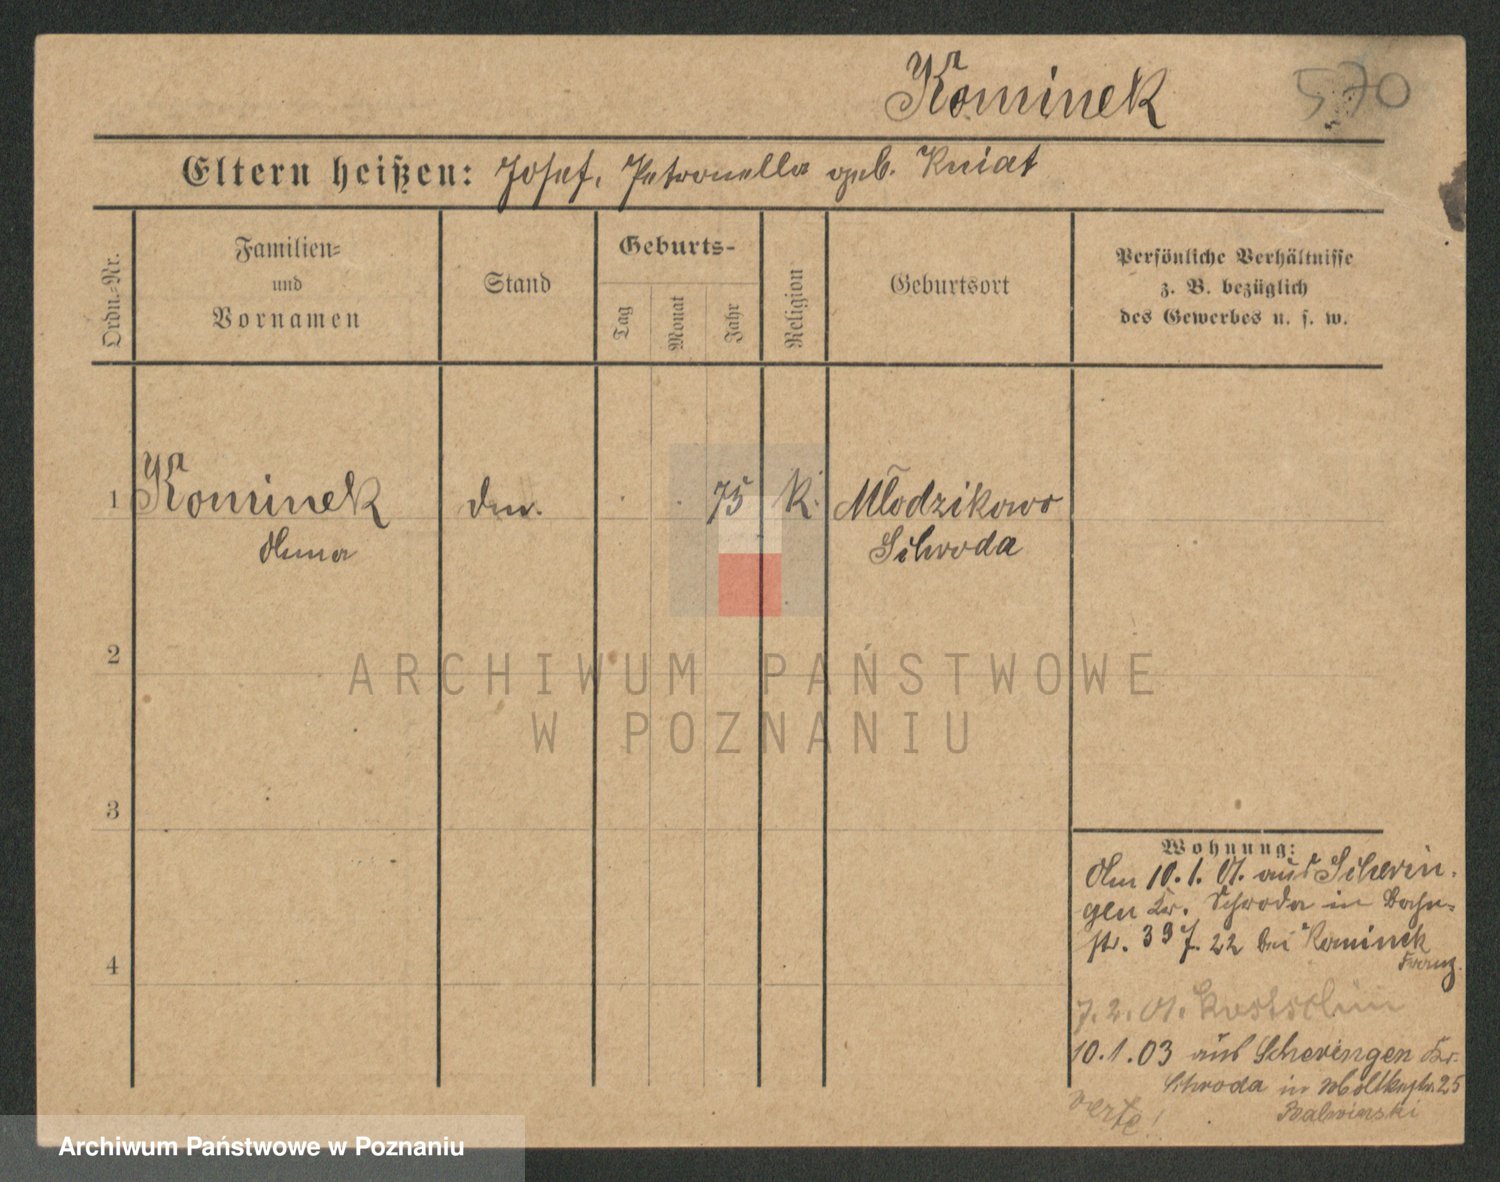 Kominek
570
Eltern heißen: Josef, Petronella geb. Kniat
Ordn.-Nr.
Familien-
und
Vornamen
Stand
Geburts-
Tag
Monat
Jahr
Religion
Geburtsort
Persönliche Verhältnisse
z. B. bezüglich
des Gewerbes u. s. w.
1 Kominek 75 k. Młodzikowo
Anna Schroda
2
ARCHIWUM PAŃSTWOWE
W POZNANIU
3
Wohnung:
Am 10.1.01. aus Scherin-
gen Kr. Schroda in Bahn-
str. 39 22 bei Kominek
Franz.
7.2.01.
10.1.03 aus Scheringen Kr.
Schroda in Moltkestr. 25
verte!
4
Archiwum Państwowe w Poznaniu